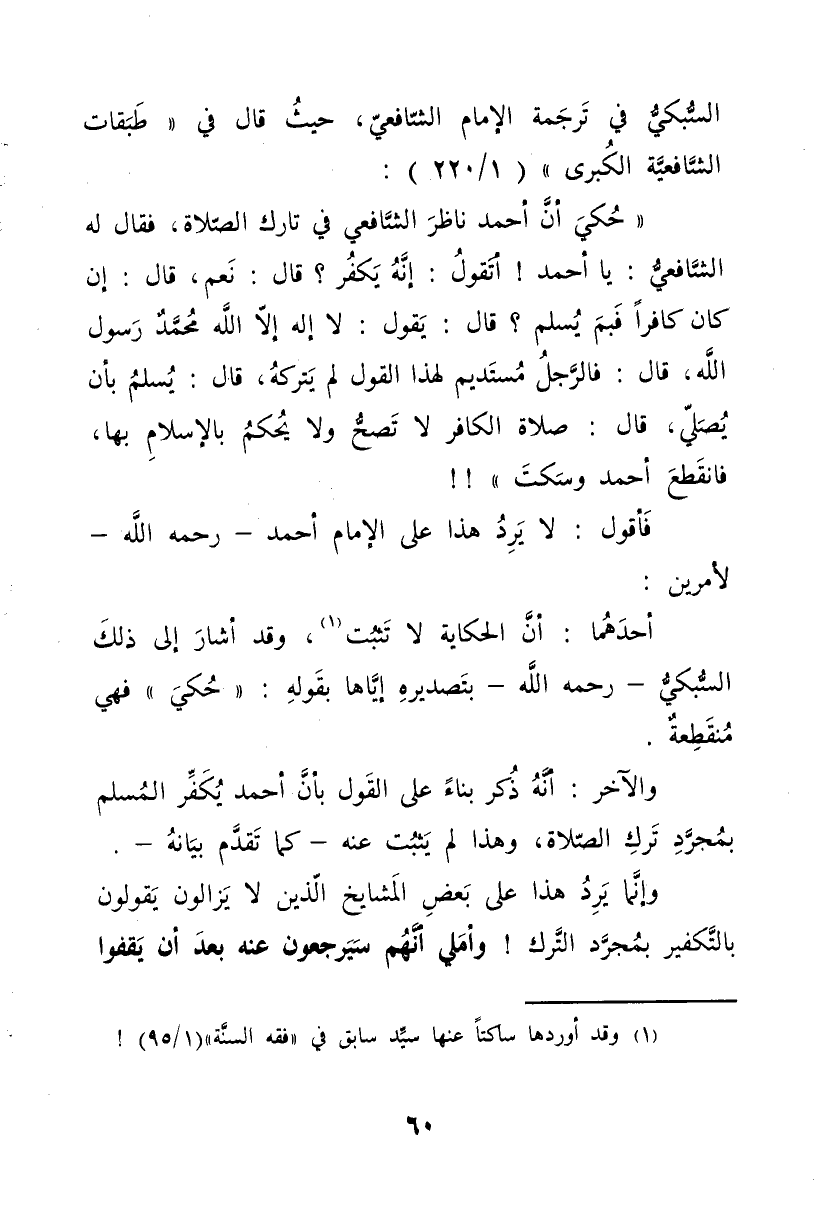 السُّبكيُّ في تَرجَمة الإمام الشّافعيّ، حيثُ قال في « طَبَقات
الشَّافعيَّة الكُبرى » ( ٢٢٠/١ ) :
« حُكيَ أنَّ أحمد ناظرَ الشَّافعي في تارك الصّلاة، فقال له
الشَّافعيُّ : يا أحمد ! أتَقولُ : إنَّهُ يَكفُر ؟ قال : نَعم، قال : إن
كان كافراً فَبمَ يُسلم ؟ قال : يَقول : لا إله إلاّ اللَّه مُحمَّدٌ رَسول
اللَّه، قال : فالرَّجلُ مُستَديم لهذا القول لم يَتركهُ، قال : يُسلمُ بأن
يُصَلّي، قال : صلاة الكافر لا تَصحُّ ولا يُحكمُ بالإسلامِ بها،
فانقَطعَ أحمد وسَكتَ » ! !
فَأقول : لا يَرِدُ هذا على الإمام أحمد – رحمه اللَّه –
لأمرين :
أحدَهُما : أنَّ الحكاية لا تَثبُت(١)، وقد أشارَ إلى ذلكَ
السُّبكيُّ – رحمه اللَّه – بتَصديرهِ إيَّاها بقَولهِ : « حُكيَ » فهي
مُنقَطِعةٌ .
والآخر : أنَّهُ ذُكر بناءً على القَول بأنَّ أحمد يُكَفِّر المُسلم
بمُجرَّدِ تَركِ الصّلاة، وهذا لم يَثبُت عنه – كما تَقدَّم بيَانهُ – .
وإنَّما يَرِدُ هذا على بَعضِ المَشايخ الّذين لا يَزالون يَقولون
بالتَّكفير بمُجرَّد التَّرك ! وأمَلي أنَّهُم سَيَرجعون عنه بعدَ أن يَقفوا
(١) وقد أوردها ساكتاً عنها سيِّد سابق في «فقه السنَّة»(٩٥/١) !
٦٠